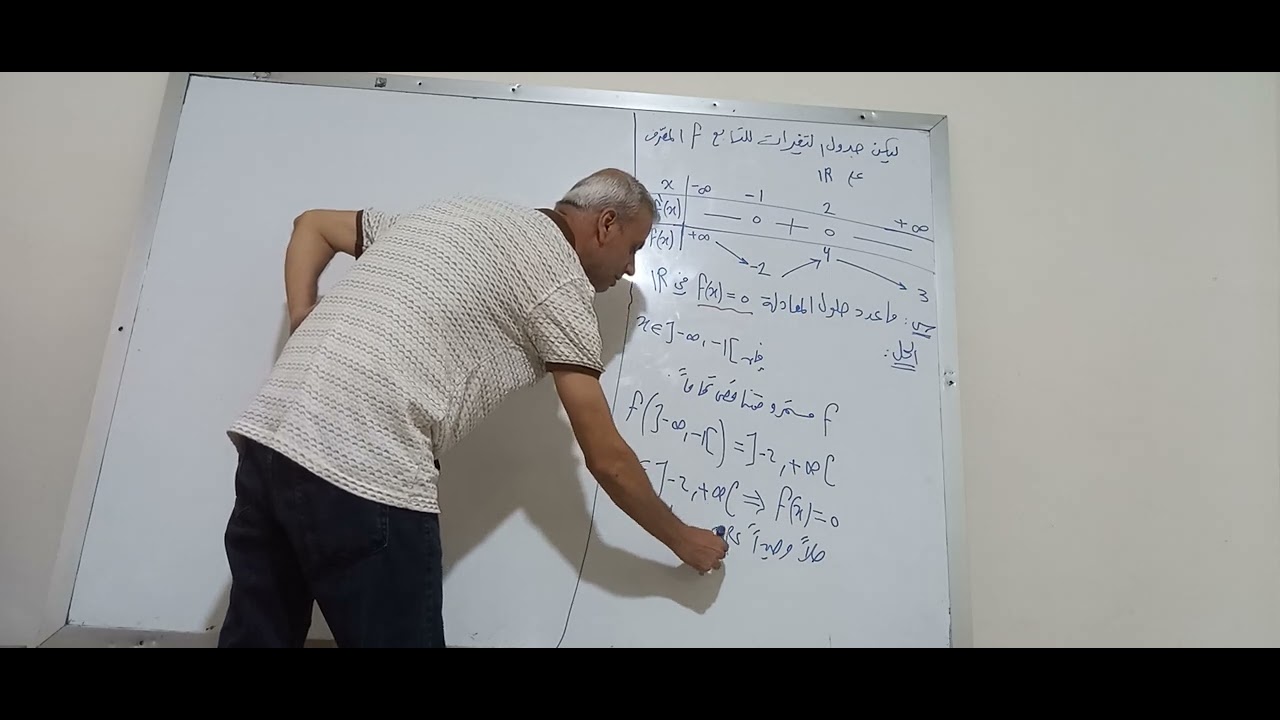 ليكن جدول لتغيرات للتابع f المعرف
على IR
x -∞ -1 2 +∞
f'(x) — 0 + 0 —
f(x) +∞ -2 4 3
س: ماعدد حلول المعادلة f(x)=0 في IR
الحل:
x∈]-∞,-1[
f مستمر و متناقص تماماً.
f(]-∞,-1[)=]-2,+∞[
∈]-2,+∞[ ⇒ f(x)=0
حلاً وحيداً